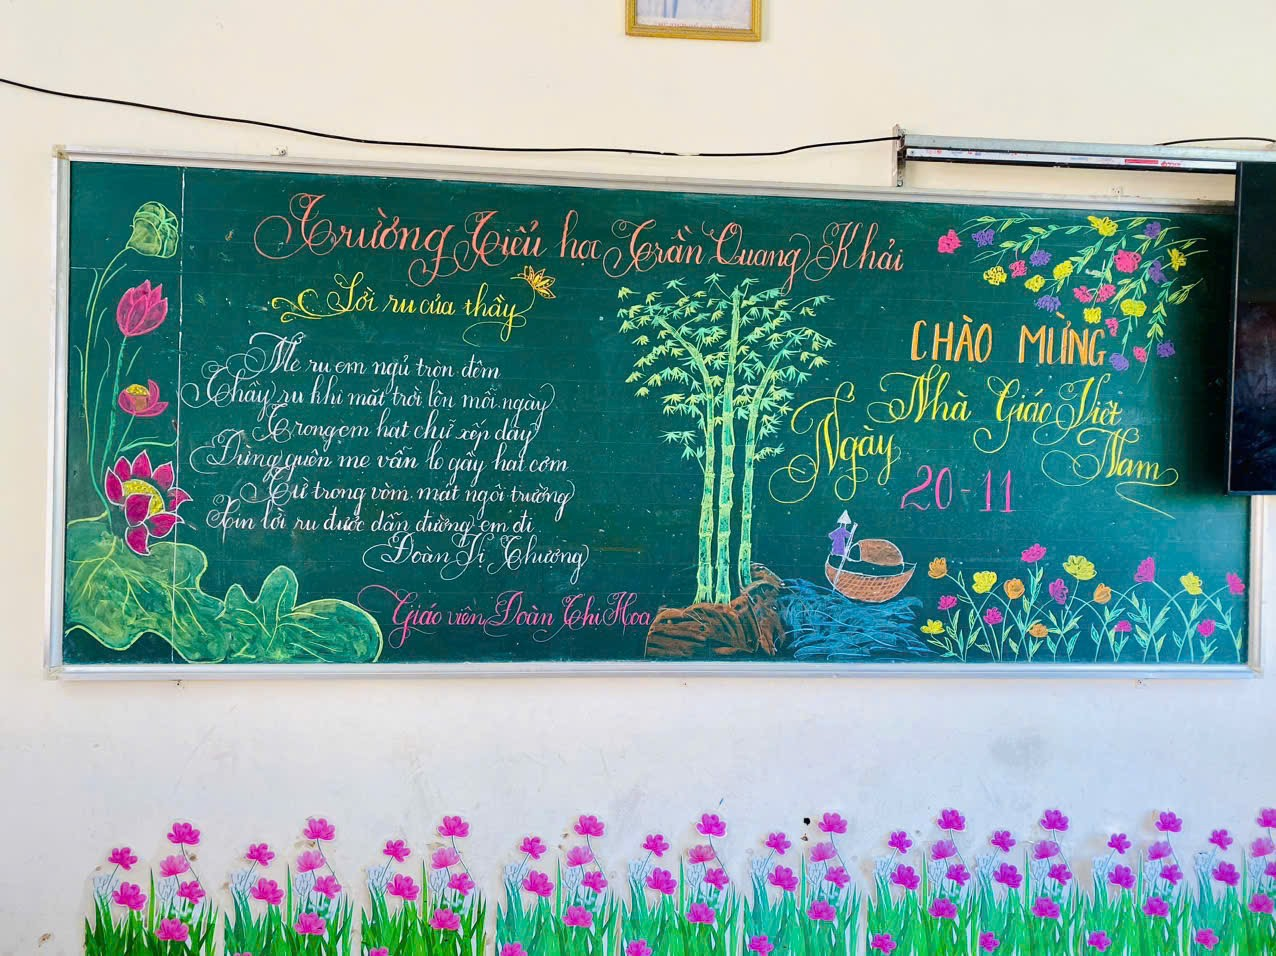 Trường Tiểu học Trần Quang Khải
Lời ru của thầy
Mẹ ru em ngủ tròn đêm
Thầy ru khi mặt trời lên mỗi ngày
Trong em hạt chữ xếp dày
Đừng quên mẹ vẫn lo gầy hạt cơm
Từ trong vòm mát ngôi trường
Xin lời ru được dẫn đường em đi
Đoàn Vị Thượng
Giáo viên Đoàn Thị Hoa
CHÀO MỪNG
Ngày Nhà Giáo Việt
Nam
20-11